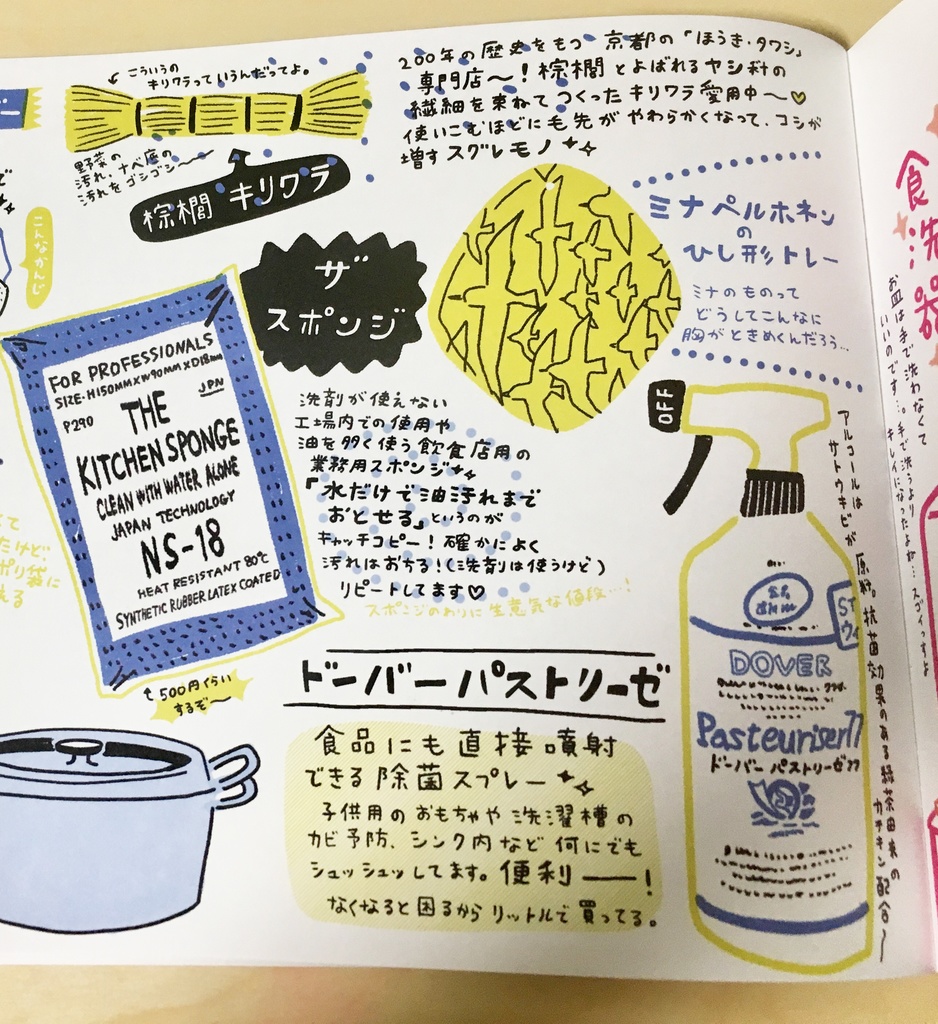 こういうの
キリワラっていうんだってよ。
野菜の
汚れ、ナベ底の
汚れをゴシゴシ〜
棕櫚 キリワラ
200年の歴史をもつ 京都の「ほうき・タワシ」
専門店〜!棕櫚とよばれるヤシ科の
繊細を束ねてつくったキリワラ愛用中〜♡
使いこむほどに毛先がやわらかくなって、コシが
増すスグレモノ
ミナペルホネン
の
ひし形トレー
ミナのものって
どうしてこんなに
胸がときめくんだろう…
こんなかんじ
ザ
スポンジ
FOR PROFESSIONALS
SIZE・H150MM×W90MM×D18MM
P290
JPN
THE
KITCHEN SPONGE
CLEAN WITH WATER ALONE
JAPAN TECHNOLOGY
NS-18
HEAT RESISTANT 80℃
SYNTHETIC RUBBER LATEX COATED
洗剤が使えない
工場内での使用や
油を多く使う飲食店用の
業務用スポンジ
『水だけで油汚れまで
おとせる』というのが
キャッチコピー!確かによく
汚れはおちる!(洗剤は使うけど)
リピートしてます♡
スポンジのわりに生意気な値段…!
500円くらい
するぞ〜
ドーバーパストリーゼ
食品にも直接噴射
できる除菌スプレー
子供用のおもちゃや洗濯槽の
カビ予防、シンク内など何にでも
シュッシュッしてます。便利——!
なくなると困るからリットルで買ってる。
OFF
DOVER
Pasteuriser77
ドーバー パストリーゼ77
アルコールは
サトウキビが原料。抗菌効果のある緑茶由来の
カテキン配合〜
食洗器
お皿は手で洗わなくて
いいのです…。手で洗うより
キレイになったよが… スゴイっすよ